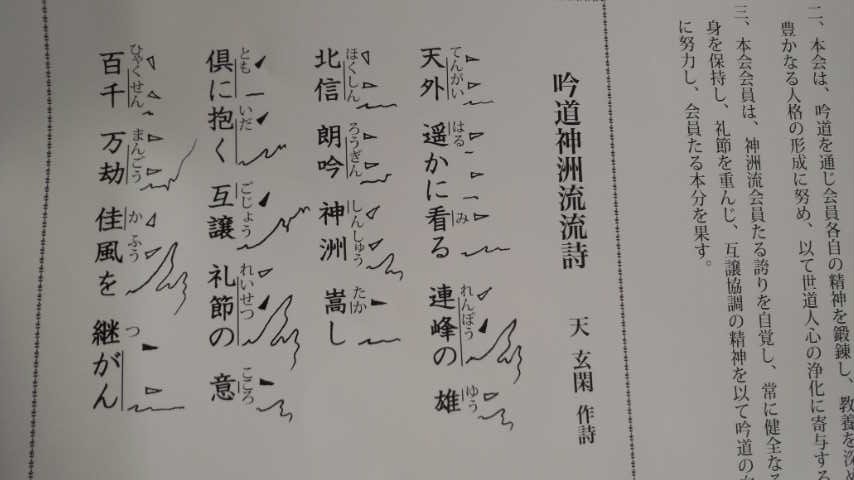 二、本会は、吟道を通じ会員各自の精神を鍛錬し、教養を深め
豊かなる人格の形成に努め、以て世道人心の浄化に寄与する
三、本会会員は、神洲流会員たる誇りを自覚し、常に健全なる
身を保持し、礼節を重んじ、互譲協調の精神を以て吟道の
に努力し、会員たる本分を果す。
吟道神洲流流詩
天 玄閑 作詩
てんがい はる み れんぽう ゆう
天外 遥かに看る 連峰の 雄
ほくしん ろうぎん しんしゅう たか
北信 朗吟 神洲 嵩し
とも いだ ごじょう れいせつ こころ
倶に抱く 互譲 礼節の 意
ひゃくせん まんごう かふう つ
百千 万劫 佳風を 継がん